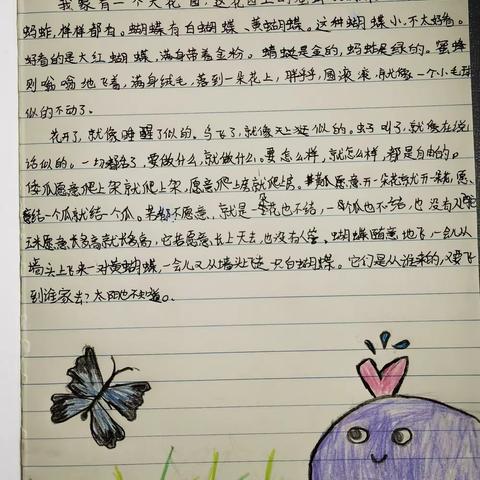 我家有一个大花园,这花园里
蚂蚱,样样都有。蝴蝶有白蝴蝶、黄蝴蝶。这种蝴蝶小,不太好看。
好看的是大红蝴蝶,满身带着金粉。蜻蜓是金的,蚂蚱是绿的。蜜蜂
则嗡嗡地飞着,满身绒毛,落到一朵花上,胖乎乎,圆滚滚,就像一个小毛球
似的不动了。
花开了,就像睡醒了似的。鸟飞了,就像在天上逛似的。虫子叫了,就像在说
话似的。一切都活了,要做什么,就做什么。要怎么样,就怎么样,都是自由的。
倭瓜愿意爬上架就爬上架,愿意爬上房就爬上房。黄瓜愿意开一朵花就开一朵花,愿
意结一个瓜就结一个瓜。若都不愿意,就是一朵花也不结,一个瓜也不结,也没有人
玉米愿意长多高就长多高,它若愿意长上天去,也没有人管。蝴蝶随意地飞,一会儿从
墙头上飞来一对黄蝴蝶,一会儿又从墙头飞走一只白蝴蝶。它们是从谁家来的,又要飞
到谁家去?太阳也不知道。